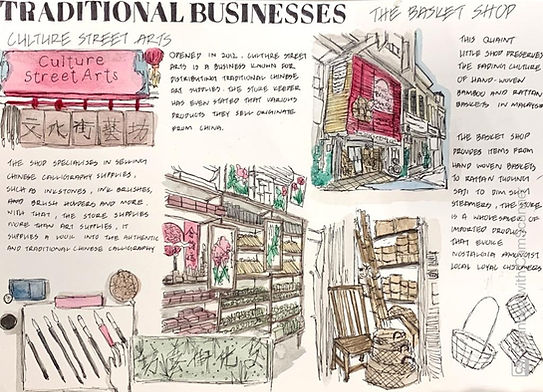 TRADITIONAL BUSINESSES
THE BASKET SHOP
CULTURE STREET ARTS
Culture
Street Arts
文化街藝坊
OPENED IN 2012, CULTURE STREET
ARTS IS A BUSINESS KNOWN FOR
DISTRIBUTING TRADITIONAL CHINESE
ART SUPPLIES. THE STORE KEEPER
HAS EVEN STATED THAT VARIOUS
PRODUCTS THEY SELL ORIGINATE
FROM CHINA.
THE SHOP SPECIALISES IN SELLING
CHINESE CALLIGRAPHY SUPPLIES,
SUCH AS INKSTONES, INK BRUSHES,
AND BRUSH HOLDERS AND MORE.
WITH THAT, THE STORE SUPPLIES
MORE THAN ART SUPPLIES, IT
SUPPLIES A LOOK INTO THE AUTHENTIC
AND TRADITIONAL CHINESE CALLIGRAPHY
THIS QUAINT
LITTLE SHOP PRESERVES
THE FADING CULTURE
OF HAND-WOVEN
BAMBOO AND RATTAN
BASKETS IN MALAYSIA
THE BASKET SHOP
PROVIDES ITEMS FROM
HAND WOVEN BASKETS
TO RATTAN TUDUNG
SAJI TO DIM SUM
STEAMERS, THE STORE
IS A WHOLESALER OF
IMPORTED PRODUCTS
THAT EVOKE
NOSTALGIA AMONGST
LOCAL LOYAL CUSTOMERS